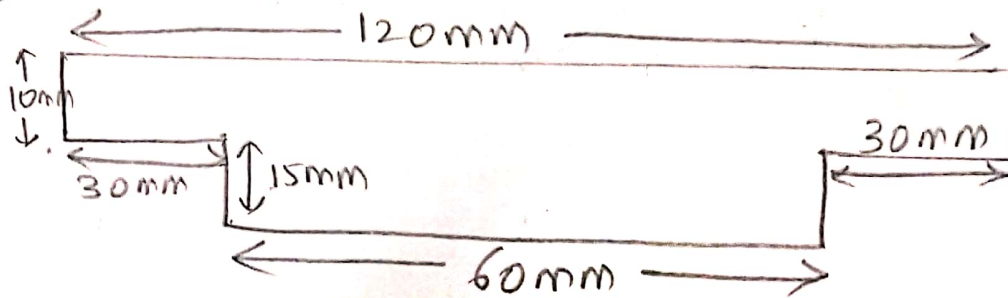 120mm
10mm
30mm
30mm
15mm
60mm